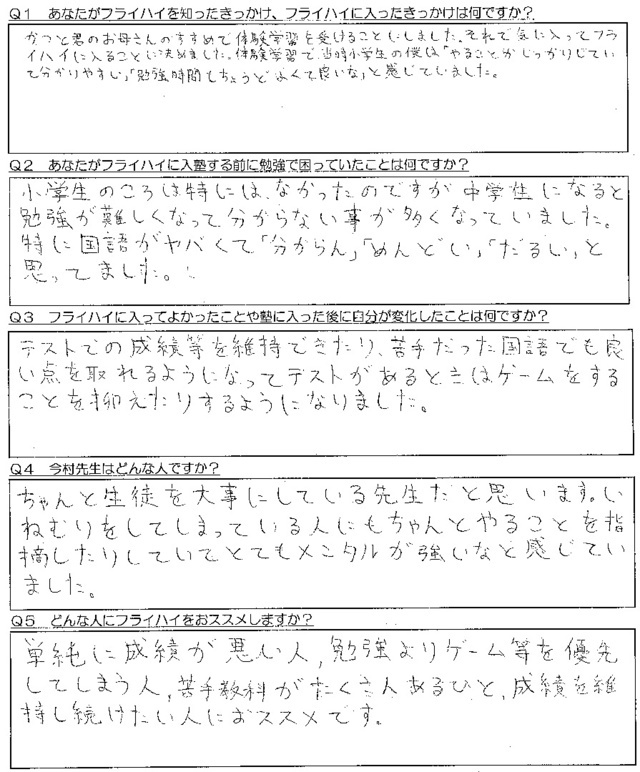 Q1 あなたがフライハイを知ったきっかけ、フライハイに入ったきっかけは何ですか？
かつと君のお母さんのすすめで体験学習を受けることにしました。それで気に入ってフラ
イハイに入ることに決めました。体験学習で、当時小学生の僕は「やることがしっかりしてい
て分かりやすい」「勉強時間もちょうどよくて良いな」と感じていました。
Q2 あなたがフライハイに入塾する前に勉強で困っていたことは何ですか？
小学生のころは特には、なかったのですが中学生になると
勉強が難しくなって分からない事が多くなっていました。
特に国語がヤバくて「分からん」「めんどい」「だるい」と
思ってました。
Q3 フライハイに入ってよかったことや塾に入った後に自分が変化したことは何ですか？
テストでの成績等を維持できたり、苦手だった国語でも良
い点を取れるようになってテストがあるときはゲームをする
ことを抑えたりするようになりました。
Q4 今村先生はどんな人ですか？
ちゃんと生徒を大事にしている先生だと思います。い
ねむりをしてしまっている人にもちゃんとやることを指
摘したりしていてとてもメンタルが強いなと感じてい
ました。
Q5 どんな人にフライハイをおススメしますか？
単純に成績が悪い人、勉強よりゲーム等を優先
してしまう人、苦手教科がたくさんあるひと、成績を維
持し続けたい人におススメです。